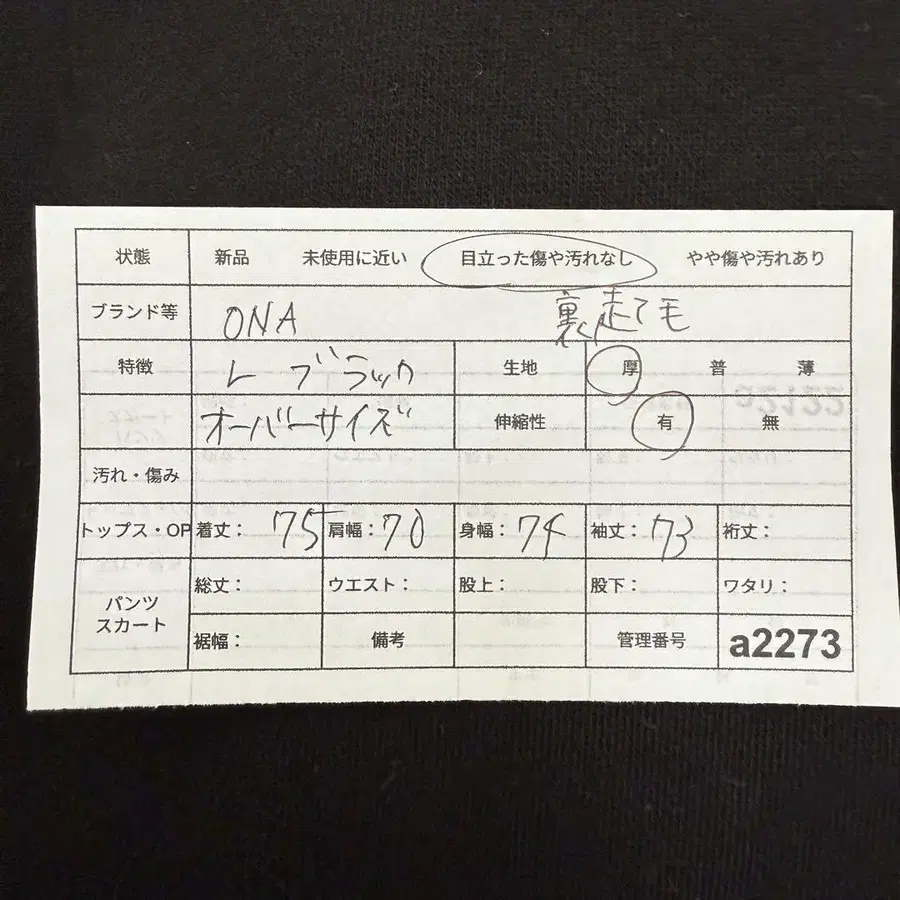 状態 新品 未使用に近い 目立った傷や汚れなし やや傷や汚れあり
ブランド等 ONA 裏起毛
特徴 レ ブラック 生地 厚 普 薄
オーバーサイズ 伸縮性 有 無
汚れ・傷み
トップス・OP 着丈： 75 肩幅：70 身幅：74 袖丈：73 裄丈：
パンツ スカート 総丈： ウエスト： 股上： 股下： ワタリ：
裾幅： 備考 管理番号 a2273